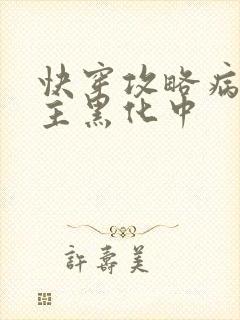 快穿攻略病
主黑化中
許壽美